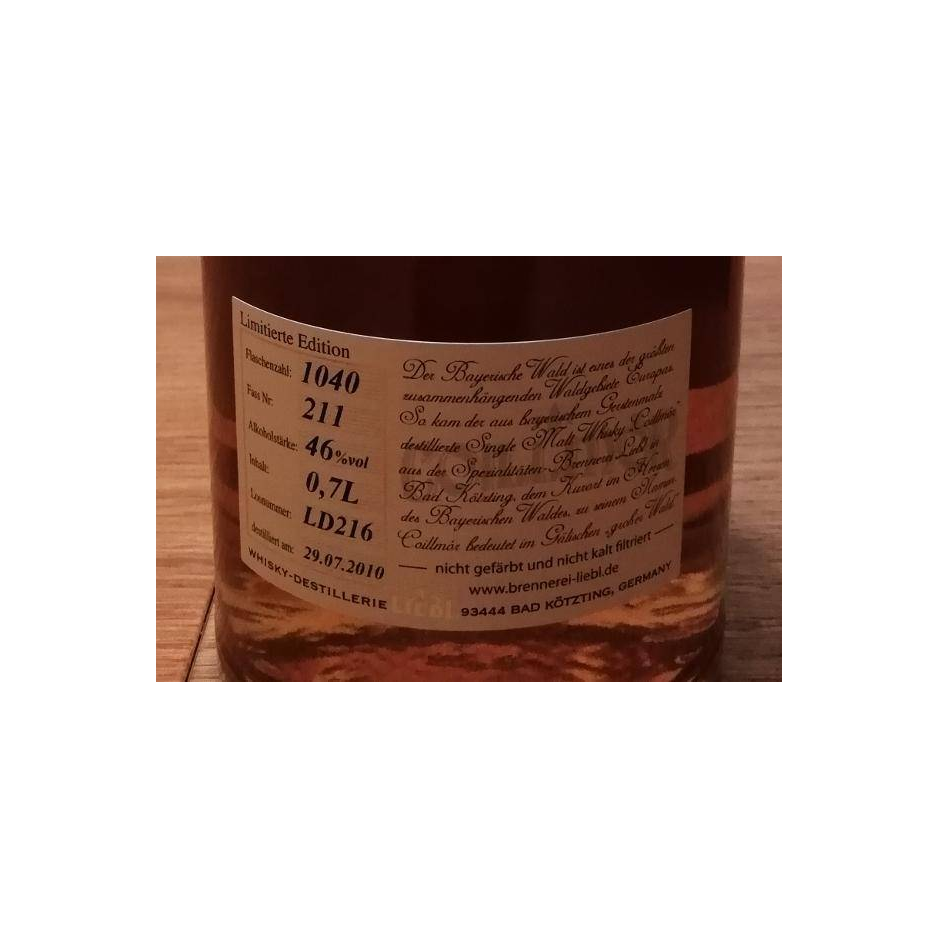 Limitierte Edition
Flaschenzahl: 1040
Fass Nr: 211
Alkoholstärke: 46%vol
Inhalt: 0,7L
Losnummer: LD216
destilliert am: 29.07.2010
Der Bayerische Wald ist eines der größten
zusammenhängenden Waldgebiete Europas.
So kam der aus bayerischem Gerstenmalz
destillierte Single Malt Whisky „Coillmór"
aus der Spezialitäten-Brennerei Liebl in
Bad Kötzting, dem Kurort im Herzen
des Bayerischen Waldes, zu seinem Namen.
Coillmór bedeutet im Gälischen „großer Wald"
nicht gefärbt und nicht kalt filtriert
www.brennerei-liebl.de
WHISKY-DESTILLERIE Liebl 93444 BAD KÖTZTING, GERMANY